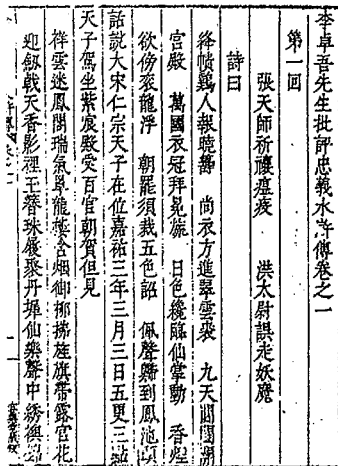 李卓吾先生批評忠義水滸傳卷之一
第一回
張天師祈禳瘟疫 洪太尉誤走妖魔
詩曰
絳幘雞人報曉籌 尚衣方進翠雲裘 九天閶闔開
宮殿 萬國衣冠拜冕旒 日色纔臨仙掌動 香煙
欲傍衮龍浮 朝罷須裁五色詔 佩聲歸到鳳池頭
話說大宋仁宗天子在位嘉祐三年三月三日五更三點
天子駕坐紫宸殿受百官朝賀但見
祥雲迷鳳閣瑞氣罩龍樓含煙御柳拂旌旗帶露宮花
迎劔戟天香影裡玉簪珠履聚丹墀仙樂聲中綉襖錦